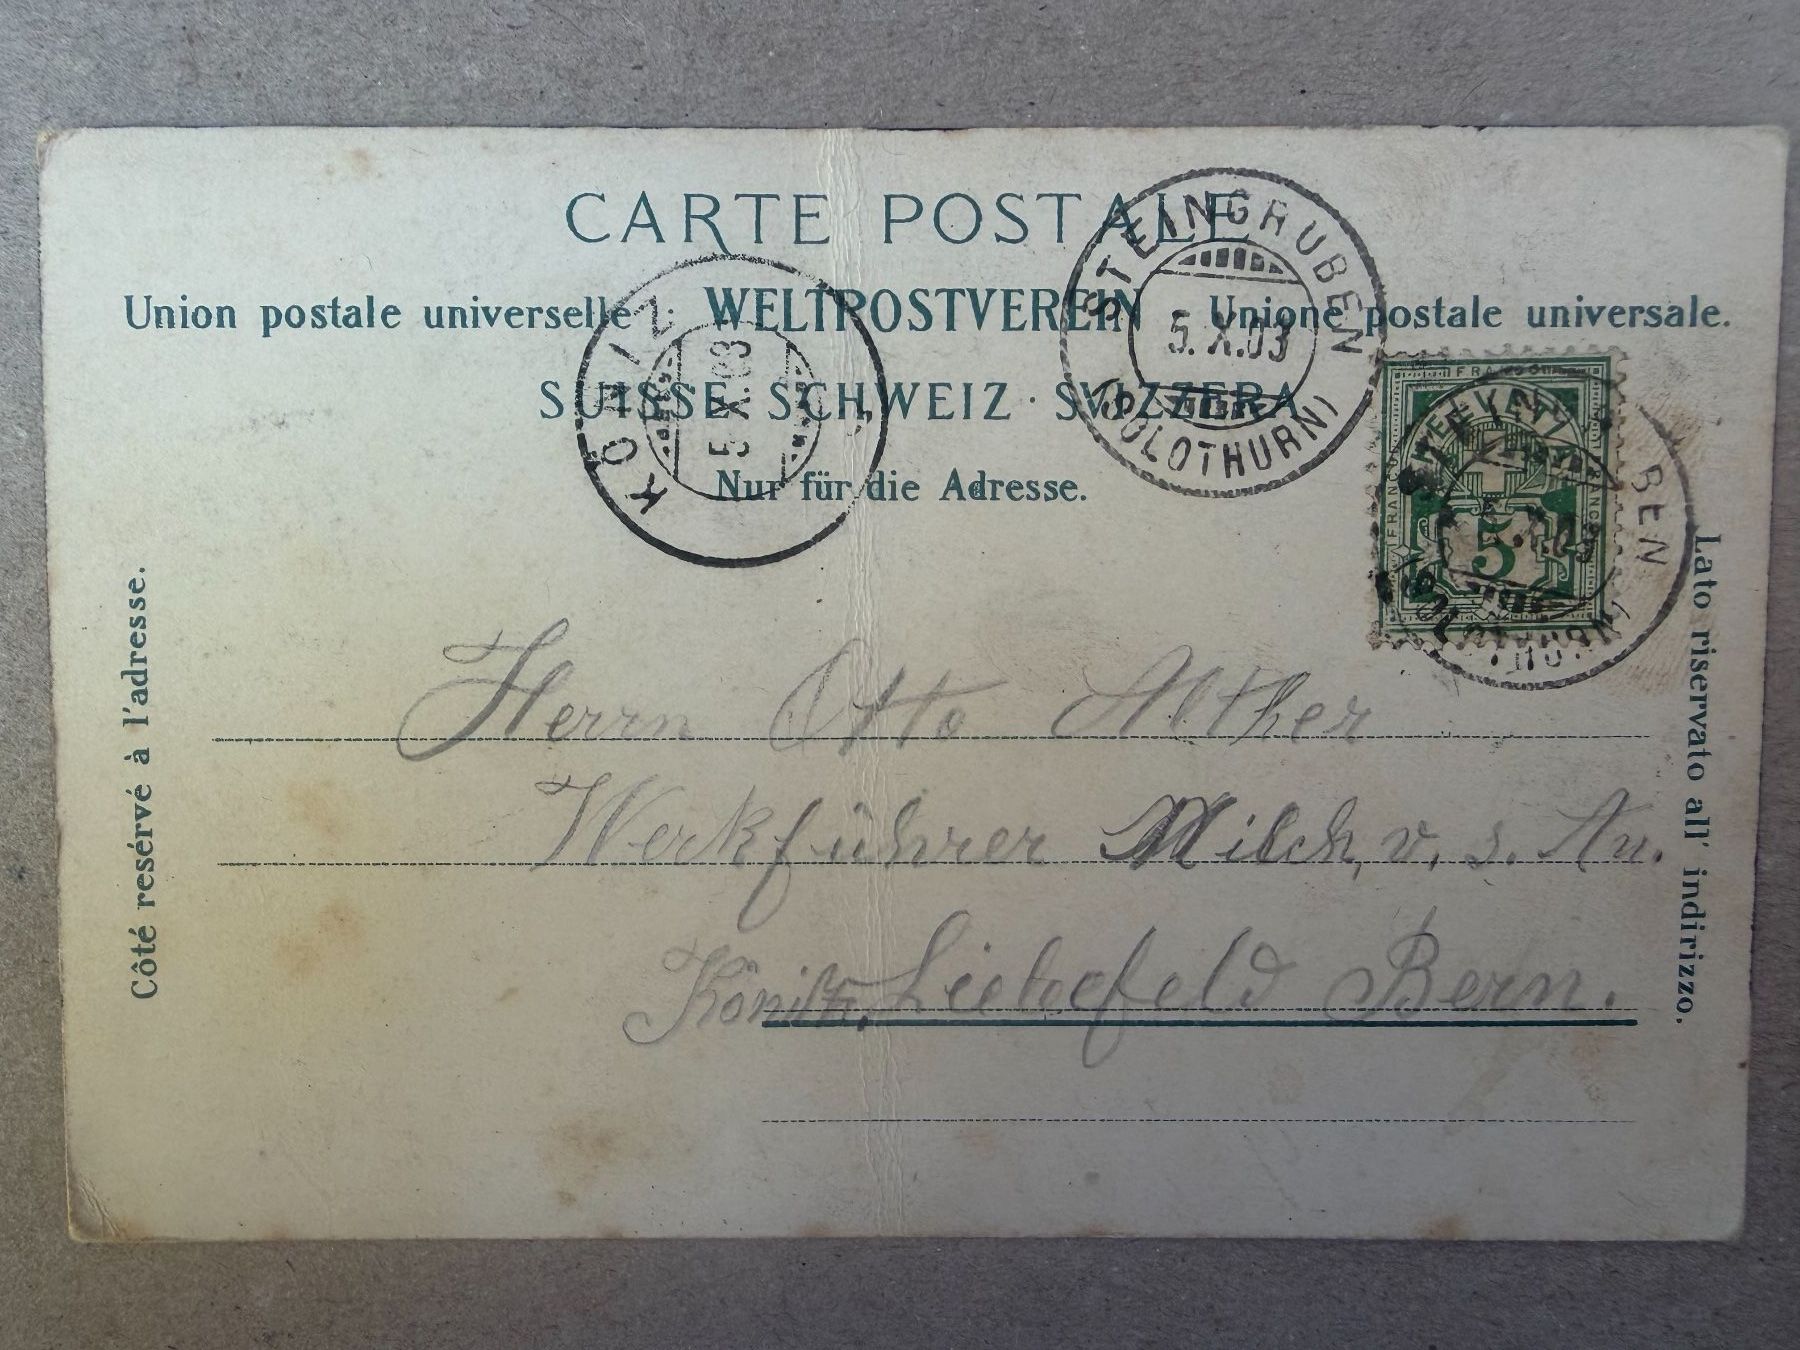 CARTE POSTALE
Union postale universelle · WELTPOSTVEREIN · Unione postale universale.
SUISSE · SCHWEIZ · SVIZZERA
Nur für die Adresse.
KÖNIZ
5 X 03
STEINGRUBEN
5. X. 03
(SOLOTHURN)
FRANCO
FRANCO
FRANCO
5
BEN
Côté resérvé à l'adresse.
Lato riservato all' indirizzo.
Herrn Otto Alther
Werkführer Milch. v. s. An.
Könitz. Liebefeld Bern.